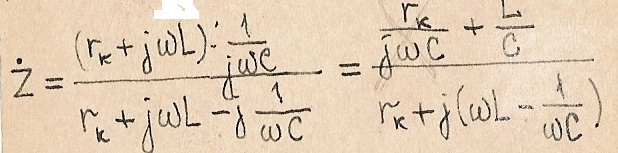 Ż = ((r_к + jωL) · 1/(jωC)) / (r_к + jωL - j 1/(ωC)) = (r_к/(jωC) + L/C) / (r_к + j(ωL - 1/(ωC)))